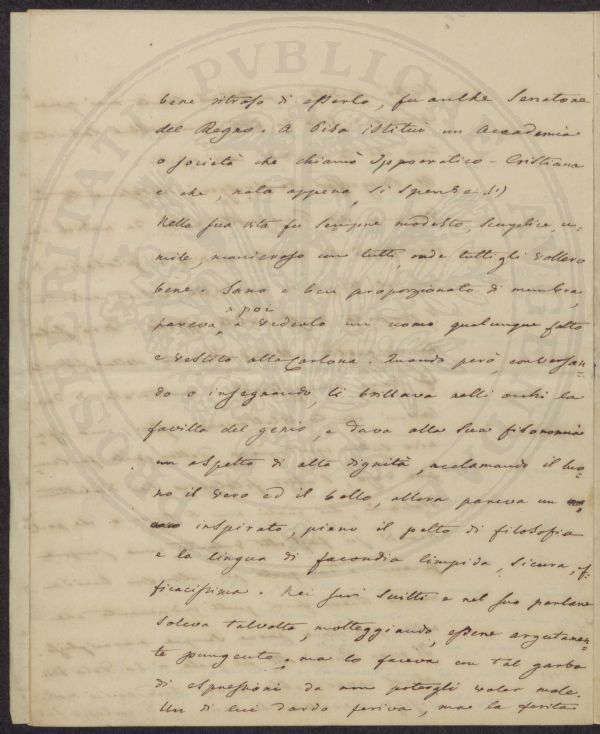 bene ritroso di esserlo, fu anche Senatore
del Regno. A Pisa istituì un Accademia
o società che chiamò Ippocratico-Cristiana
e che, nata appena, si spense.
Nella sua vita fu sempre modesto, semplice, u-
mile, manieroso con tutti, onde tutti gli vollero
bene. Sano e ben proporzionato di membra,
poi
pareva, a vederlo un uomo qualunque fatto
e vestito alla Carlona. Quando però, conversan=
do o insegnando, li brillava nelli occhi la
favilla del genio, e dava alla sua fisonomia
un aspetto di alta dignità, acclamando il buo-
no il vero ed il bello, allora pareva un
inspirato, pieno il petto di filosofia
e la lingua di facondia limpida, sicura, ef-
ficacissima. Nei suoi scritti e nel suo parlare
soleva talvolta, motteggiando, essere argutamen=
te pungente, ma lo faceva con tal garbo
di espressioni da non potergli voler male.
Un di lui dardo feriva, ma la ferita
PROSPERITATI PUBLICAE